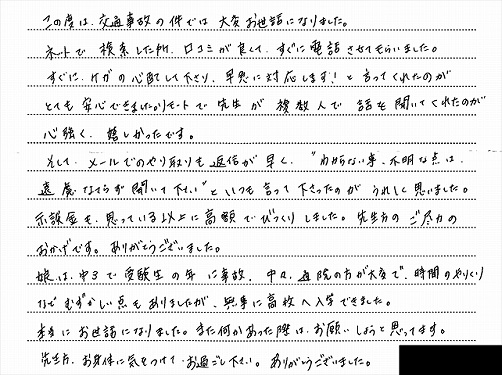 この度は、交通事故の件では大変お世話になりました。
ネットで検索した所、口コミが良くて、すぐに電話させてもらいました。
すぐに、ケガの心配して下さり、早急に対応します！と言ってくれたのが
とても安心できました。リモートで先生が複数人で話を聞いてくれたのが
心強く、嬉しかったです。
そして、メールでのやり取りも返信が早く、"わからない事、不明な点は、
遠慮なさらず聞いて下さい"といつも言って下さったのがうれしく思いました。
示談金も、思っている以上に高額でびっくりしました。先生方のご尽力の
おかげです。ありがとうございました。
娘は、中3で受験生の年に事故、中々、通院の方が大変で、時間のやりくり
などむずかしい点もありましたが、無事に高校へ入学できました。
本当にお世話になりました。また何かあった際は、お願いしようと思ってます。
先生方、お身体に気をつけてお過ごし下さい。ありがとうございました。